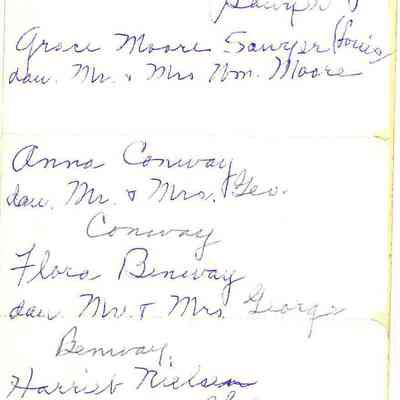 (Sawyer)
Grace Moore Sawyer (Louis)
dau. Mr. & Mrs Wm. Moore
Anna Conway
dau. Mr. & Mrs. Geo.
Conway
Flora Benway
dau. Mr. & Mrs. George
Benway.
Harriet Nielsen